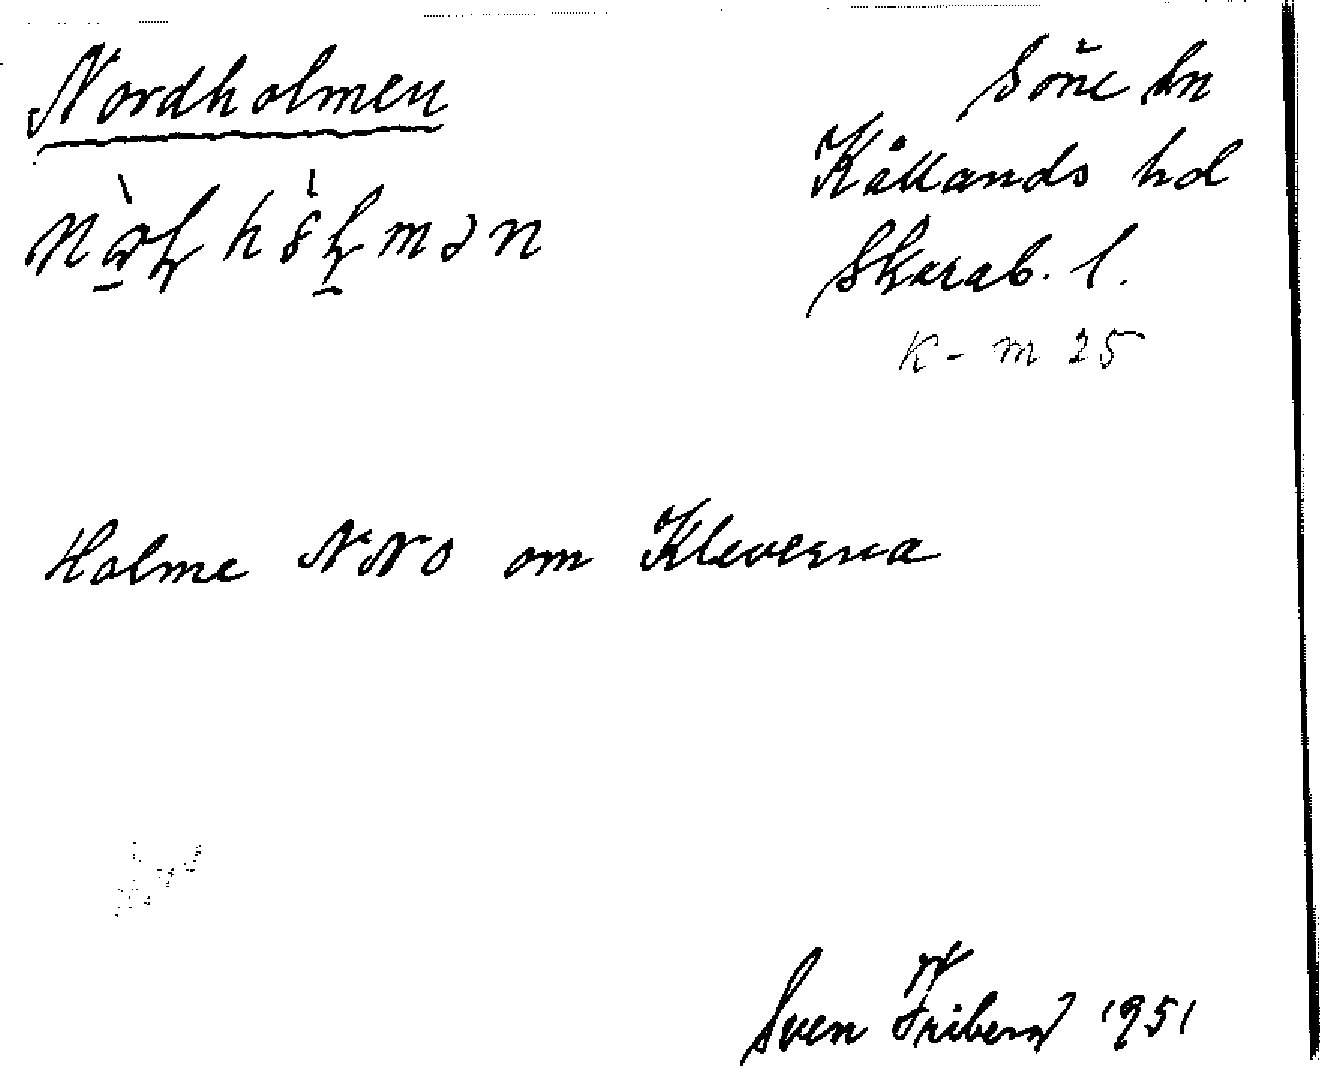 Nordholmen
Söne sn
Kållands hd
Skarab. l.
K- m 25
Holme NNO om Kleverna
Sven Friberg 1951